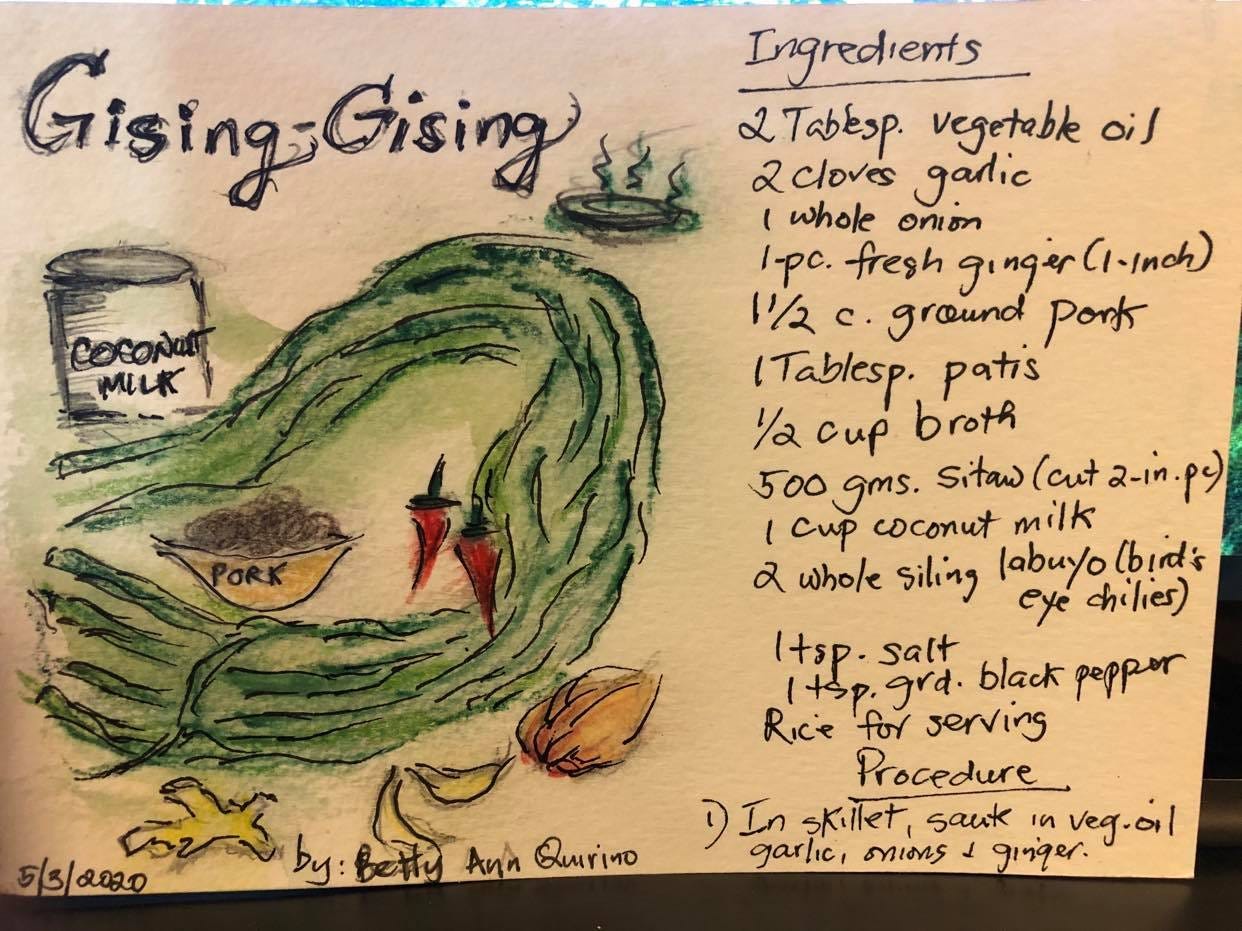 Gising-Gising
COCONUT
MILK
PORK
by: Betty Ann Quirino
5/3/2020
Ingredients
2 Tablesp. vegetable oil
2 cloves garlic
1 whole onion
1-pc. fresh ginger (1-inch)
1 1/2 c. ground pork
1 Tablesp. patis
1/2 cup broth
500 gms. sitaw (cut 2-in.pc)
1 cup coconut milk
2 whole siling labuyo (bird's
eye chilies)
1 tsp. salt
1 tsp. grd. black pepper
Rice for serving
Procedure
1) In skillet, sauté in veg. oil
garlic, onions & ginger.